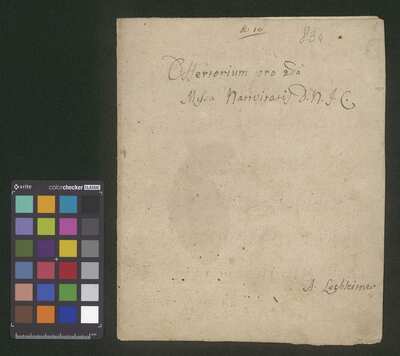 834
Offertorium pro 2dâ
Missa Nativitatis D. N. J. C.
A. Lechleitner
x-rite
colorchecker CLASSIC